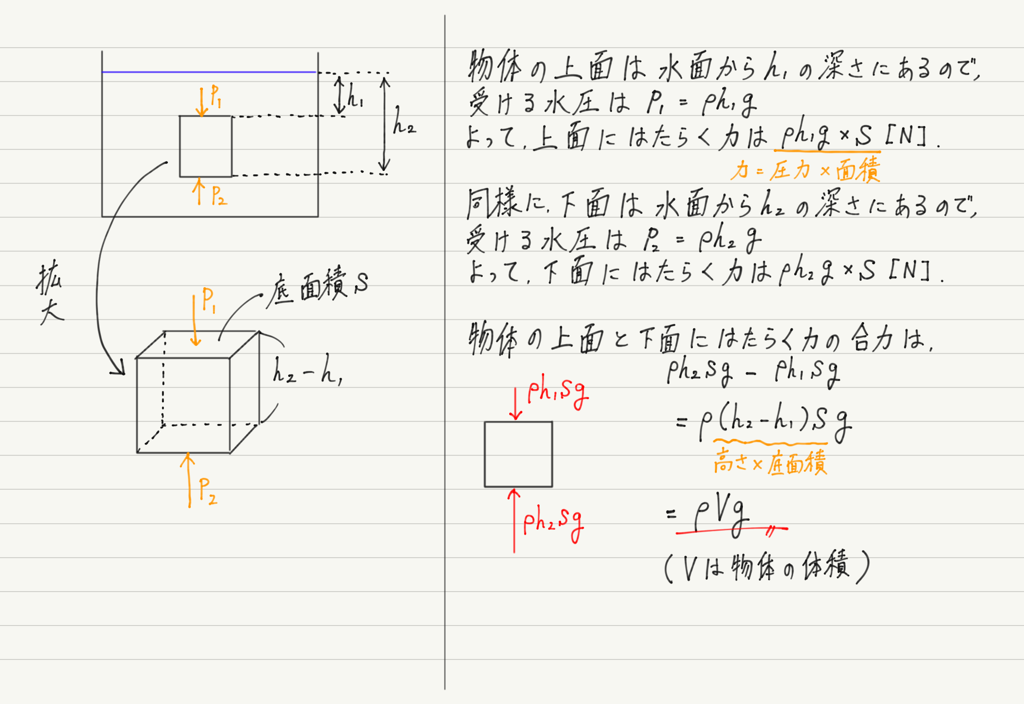 P₁
h₁
h₂
P₂
拡大
底面積 S
P₁
h₂-h₁
P₂
物体の上面は水面からh₁の深さにあるので,
受ける水圧は P₁ = ρh₁g
よって,上面にはたらく力は ρh₁g × S [N].
力 = 圧力 × 面積
同様に,下面は水面からh₂の深さにあるので,
受ける水圧は P₂ = ρh₂g
よって,下面にはたらく力はρh₂g × S [N].
物体の上面と下面にはたらく力の合力は,
ρh₂Sg - ρh₁Sg
ρh₁Sg
= ρ(h₂-h₁)Sg
高さ×底面積
ρh₂Sg
= ρVg
(Vは物体の体積)